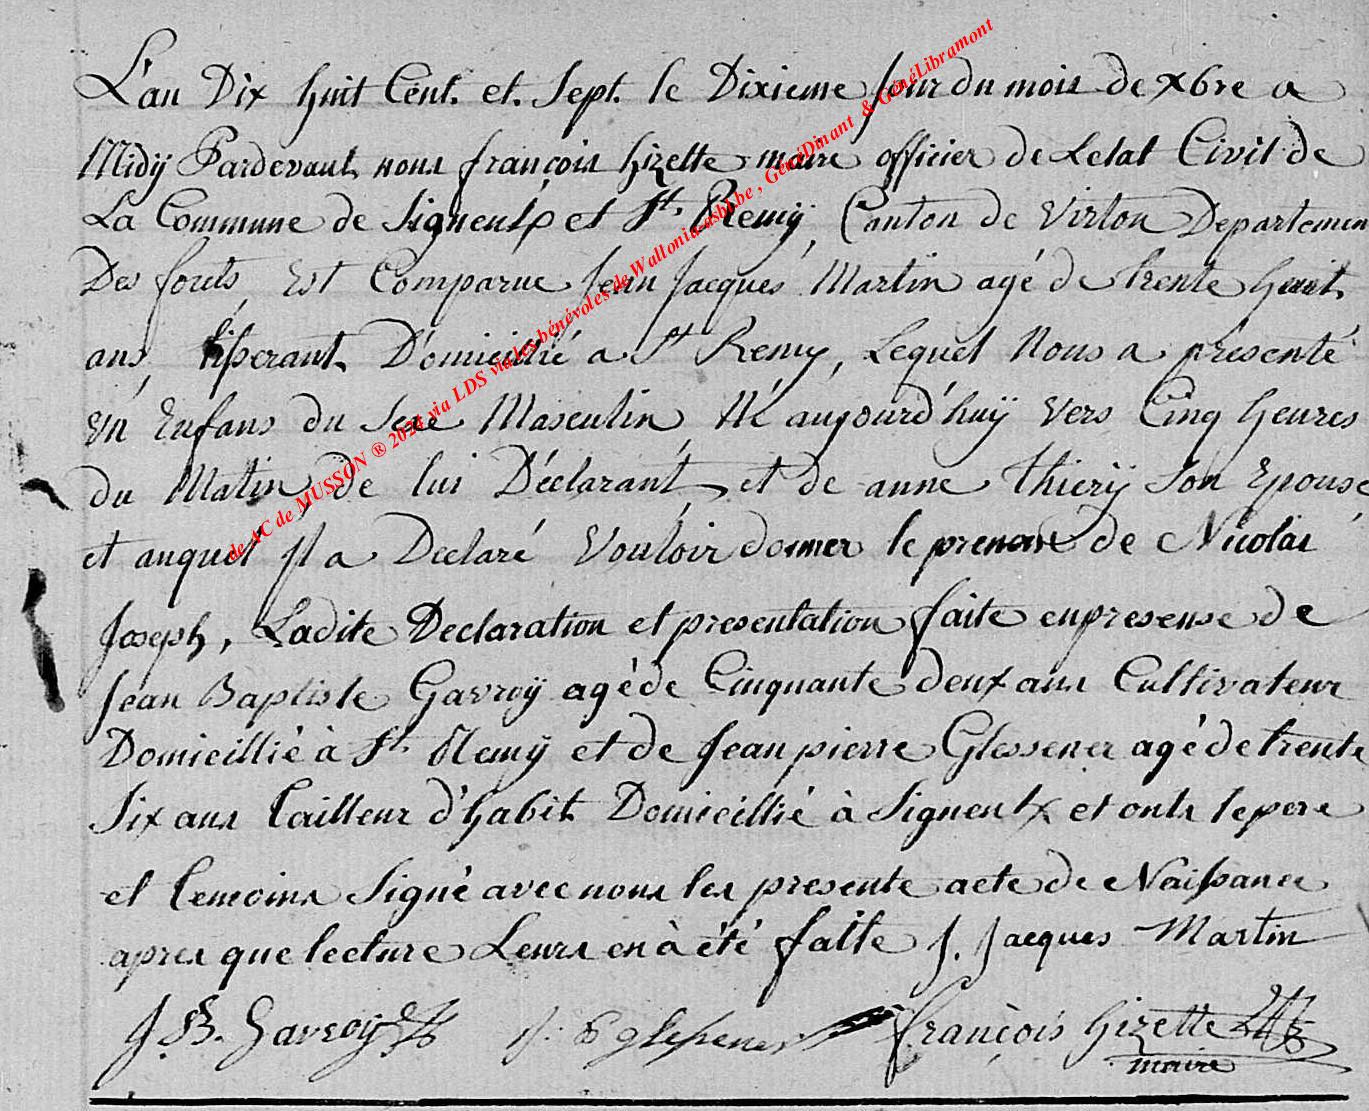 L'an Dix huit Cent. et. Sept. le Dixieme jour du mois de xbre a
Midÿ Pardevant nous françois hizette maire officier de Letat Civil de
La Commune de Signeulx et St. Remÿ Canton de Virton Departemen
Des forets, Est Comparue Jean Jacques Martin agé de trente huit
ans, Domicillié a St Remy, Lequel Nous a presenté
un Enfans du Sexe Masculin, Né aujourd'huÿ Vers Cinq heures
du Matin, de lui Déclarant, et de anne thierÿ Son Epouse
et auquel jl a Declaré Vouloir donner le prenom de Nicolas
Joseph, Ladite Declaration et presentation faite en presense de
Jean Baptiste Gavroÿ agé de Cinquante deux ans Cultivateur
Domicillié à St. Remÿ et de Jean pierre Glessener agé de trente
Six ans tailleur d'habit Domicillié à Signeulx et onts le pere
et temoins Signé avec nous les presente acte de Naissance
apres que lecture Leurs en à été faite J. Jacques Martin
J. B. Gavroÿ J. P glessener françois hizette
maire
de AC de MUSSON ® 2024 via LDS via les bénévoles de Wallonia-asbl.be , GénéDinant & GénéLibramont